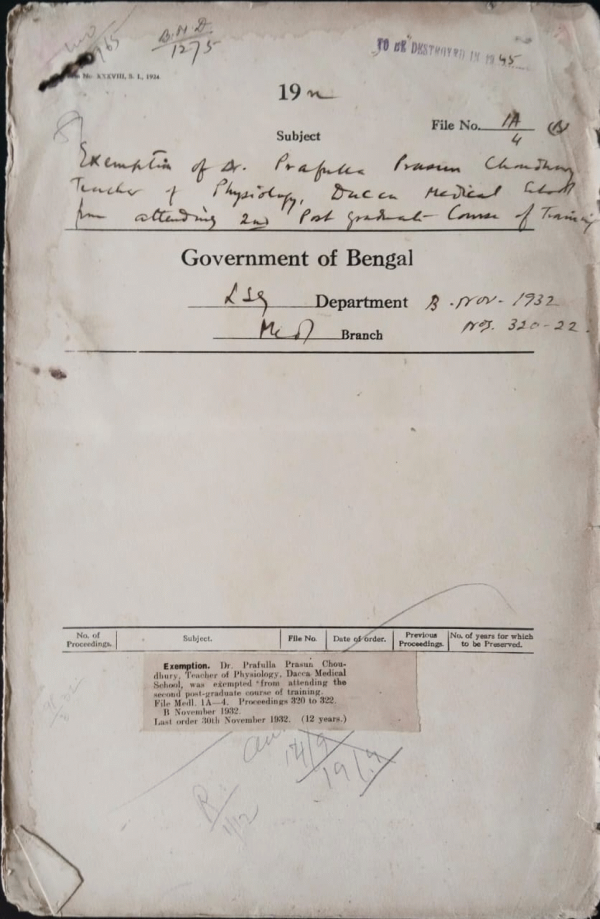 B.N.D.
1275
TO BE DESTROYED IN 1945
No. XXXVIII, S. I., 1924
19
File No. 1A/4 (B)
Subject
Exemption of Dr. Prafulla Prasun Choudhury
Teacher of Physiology, Dacca Medical School
from attending 2nd Post graduate Course of Training
Government of Bengal
LSG Department B. Nov. 1932
Medl Branch Nos. 320-22.
No. of Proceedings. Subject. File No. Date of order. Previous Proceedings. No. of years for which to be Preserved.
Exemption. Dr. Prafulla Prasun Chou-
dhury, Teacher of Physiology, Dacca Medical
School, was exempted from attending the
second post-graduate course of training.
File Medl. 1A—4. Proceedings 320 to 322.
B November 1932.
Last order 30th November 1932. (12 years.)
14/9
19/9
R
1/12